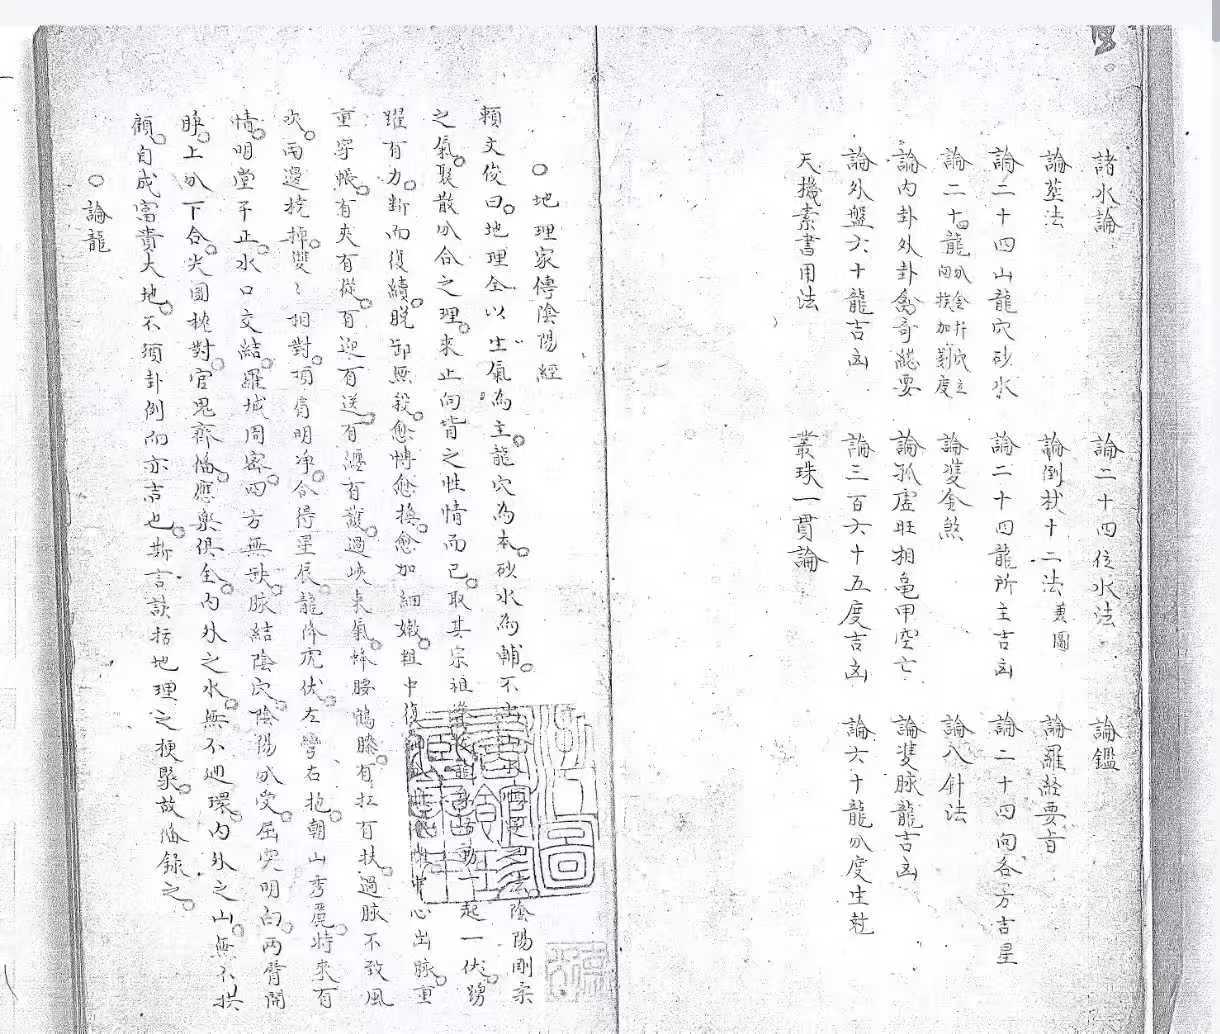 諸水論　論二十四位水法　論鑑
論塟法　論倒杖十二法 兼圖　論羅經要旨
論二十四山龍穴砂水　論二十四龍所主吉凶　論二十四向各方吉星
論二十四龍 分金 穴立向 加 度　論雙金煞　論八針法
論內卦外卦禽奇總要　論孤虛旺相龜甲空亡　論雙脉龍吉凶
論外盤六十龍吉凶　論三百六十五度吉凶　論六十龍分度生尅
天機素書用法　叢珠一貫論
地理家傳陰陽經
賴文俊曰地理全以生氣為主龍穴為本砂水為輔不 陰陽剛柔
之氣聚散分合之理來止向背之性情而已取其宗祖 動一起一伏踴
躍有力断而復續脫卸無殺愈愽愈換愈加細嫩粗中 中心出脉重
重穿帳有夾有從有迎有送有纒有護過峽束氣蜂腰鶴膝有扛有扶過脉不致風
吹兩邊撓掉雙〻相對項肩明净合得星辰龍降虎伏左彎右抱朝山秀麗特來有
情明堂平正水口交結羅城周密四方無缺脉結陰穴陰陽分受屈突明白兩臂開
睁上分下合尖圓枕對官鬼齊偹應樂俱全內外之水無不迴環內外之山無不拱
顧自成富貴大地不須卦例而亦吉也斯言該括地理之梗槩故偹錄之
論龍